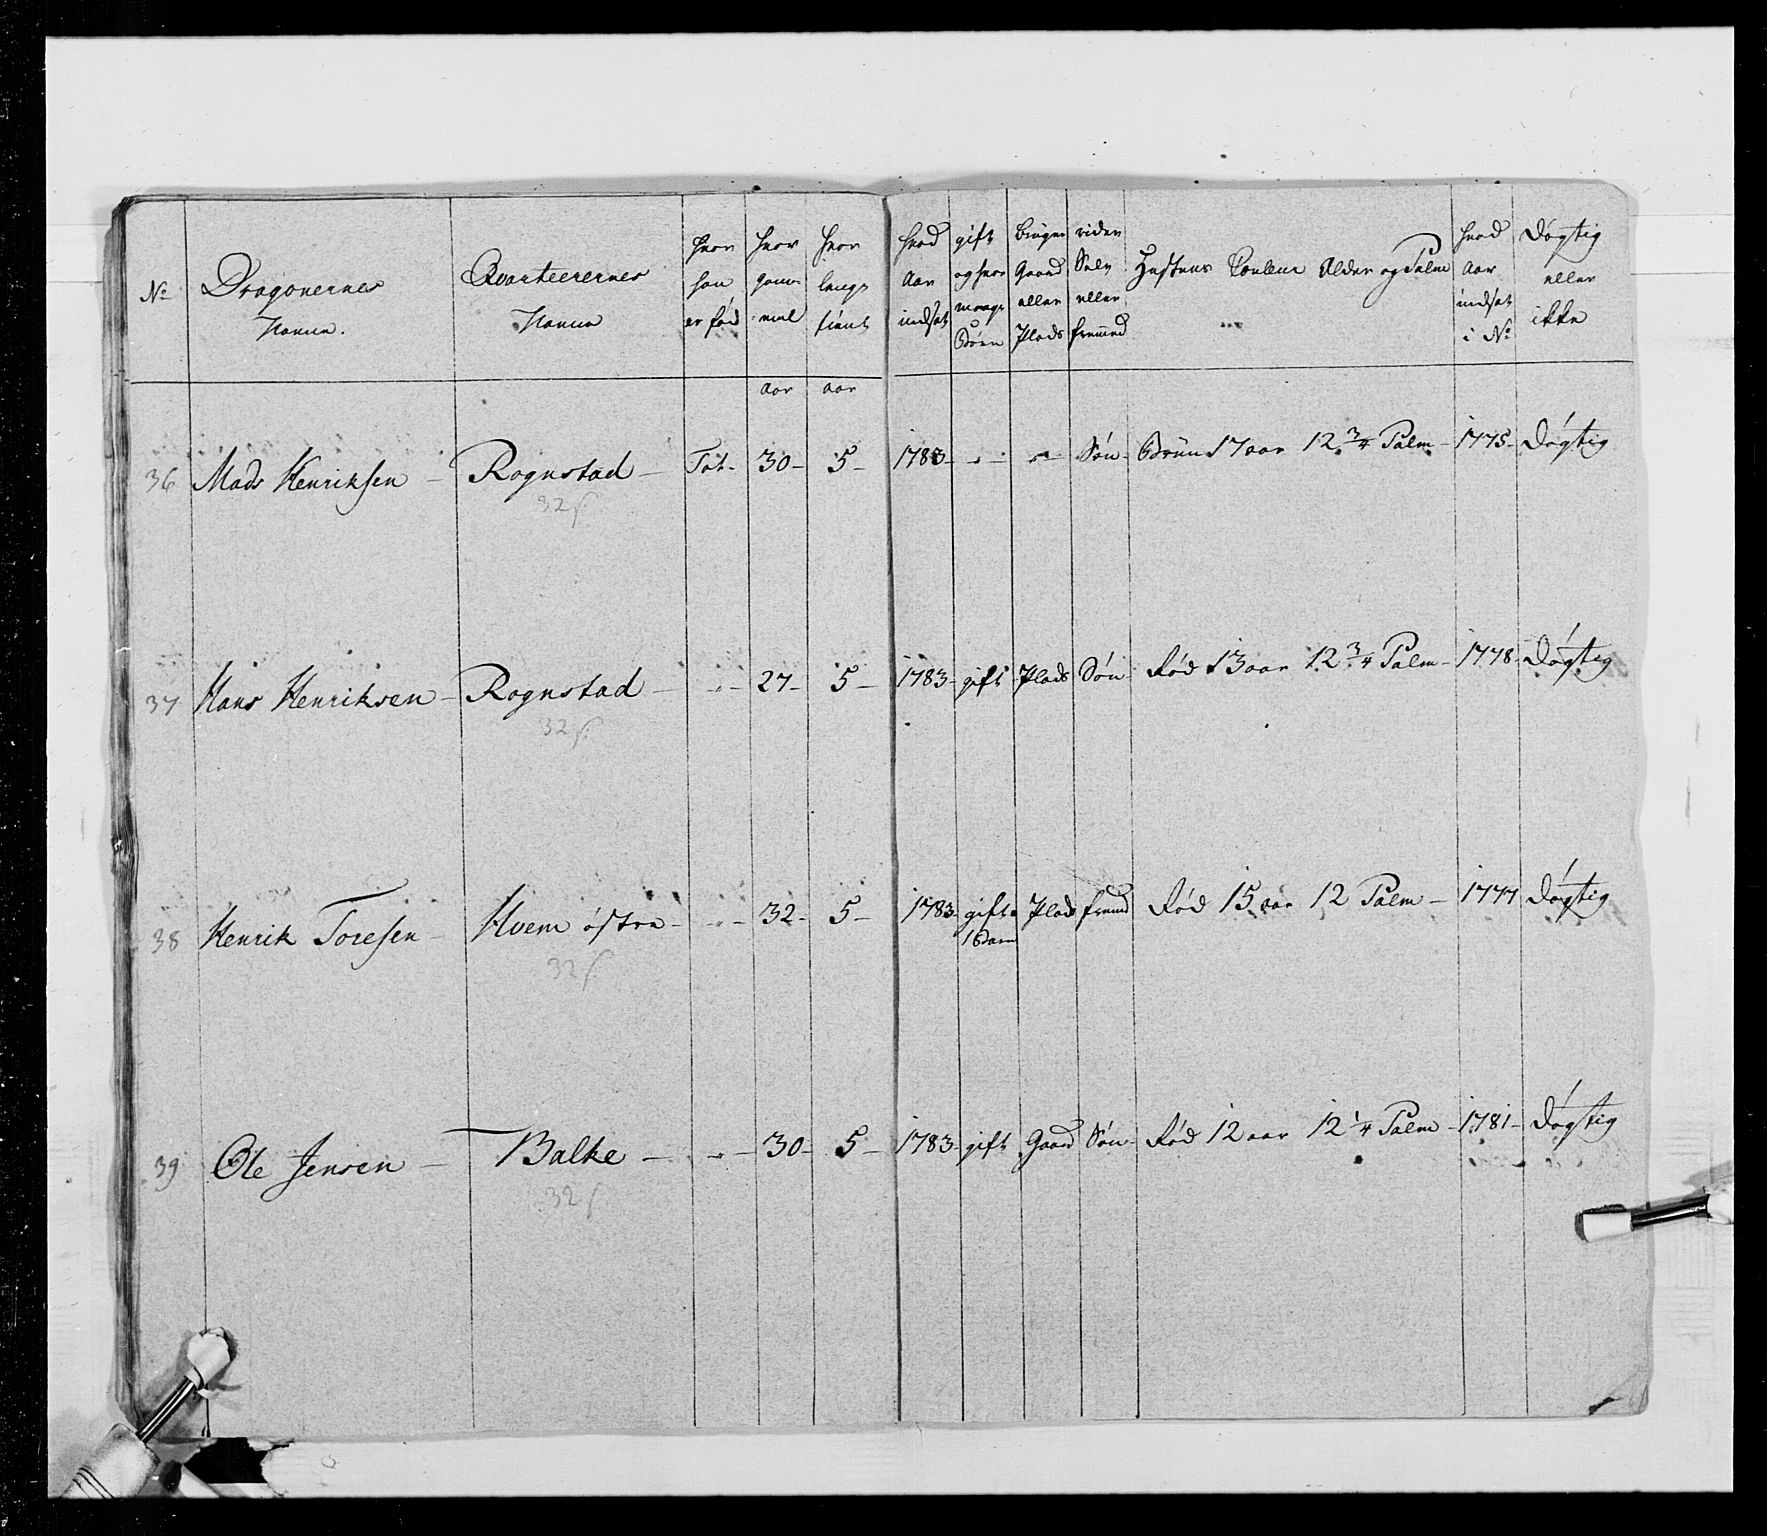 No
Dragonernes
Navne.
Qvarteerernes
Navne
hvor
han
er fød
hvor
gam-
mel
hvor
længe
tient
hvad
Aar
indsat
gift
og hvor
mange
Børn
bruger
Gaard
eller
Plads
rider
Sely
eller
fremed
Hestens Couleur Alder og Palm
hvad
Aar
indsat
i No
Døgtig
eller
ikke
Aar Aar
36 Mads Henriksen – Rognstad – Tot. 30 – 5 – 1783 – " – " – Søn – Brun 17 aar 12 3/4 Palm – 1775 – Døgtig
32 s.
37 Hans Henriksen – Rognstad – " – 27 – 5 – 1783 – gift Plads Søn Rød 13 aar 12 3/4 Palm – 1778 – Døgtig
32 s.
38 Henrik Toresen – Hvem østre – " – 32 – 5 – 1783 – gift Plads fremd Rød 15 aar 12 Palm – 1777 Døgtig
1 Barn
32 s.
39 Ole Jensen – Balke – " – 30 – 5 – 1783 – gift Gaard Søn – Rød 12 aar 12 1/4 Palm – 1781 – Døgtig
32 s